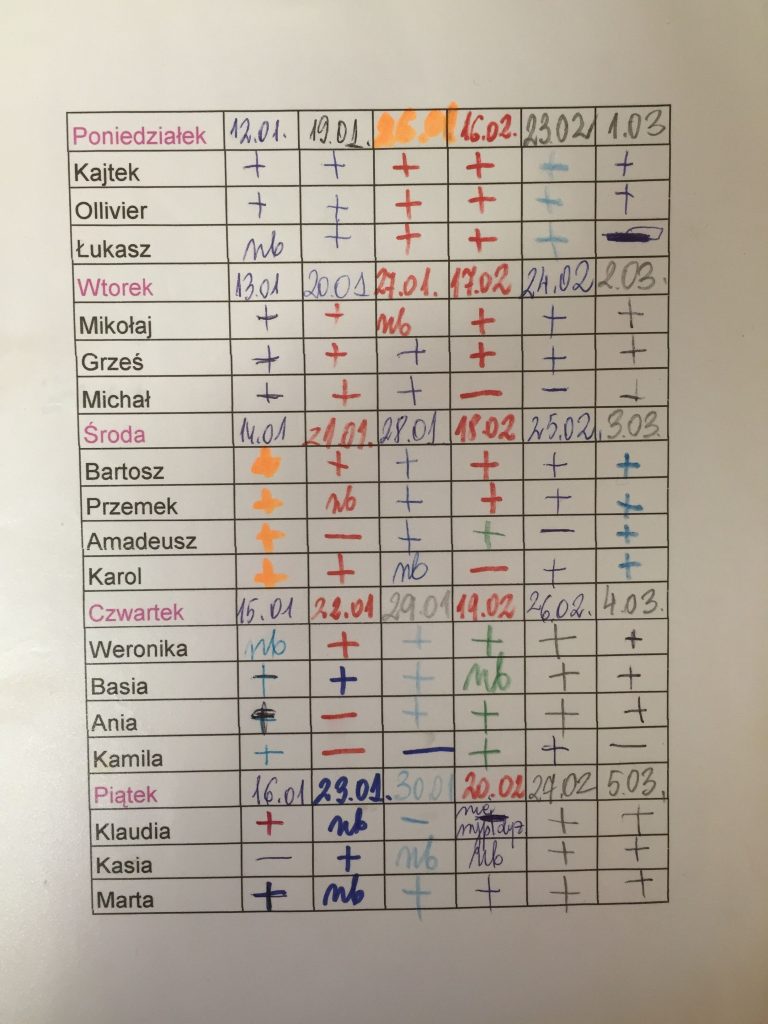 Poniedziałek 12.01. 19.01. 16.02. 23.02 1.03
Kajtek + + + + + +
Ollivier + + + + + +
Łukasz nb + + + + -
Wtorek 13.01 20.01 27.01. 17.02 24.02 2.03.
Mikołaj + + nb + + +
Grześ + + + + + +
Michał + + + - - +
Środa 14.01 21.01. 28.01 18.02 25.02. 3.03.
Bartosz + + + + + +
Przemek + nb + + + +
Amadeusz + - + + - +
Karol + + nb - + +
Czwartek 15.01 22.01 29.01 19.02 26.02. 4.03.
Weronika nb + + + + +
Basia + + + nb + +
Ania + - + + + +
Kamila + - - + + -
Piątek 16.01 23.01. 30.01 20.02 27.02 5.03.
Klaudia + nb - nie + +
Kasia - + nb nb + +
Marta + nb + + + +